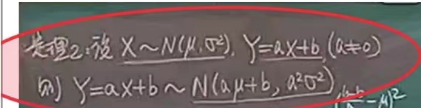 定理2:设 X~N(μ,σ²), Y=ax+b,(a≠0)
则 Y=ax+b~N(aμ+b, a²σ²)
-μ)²